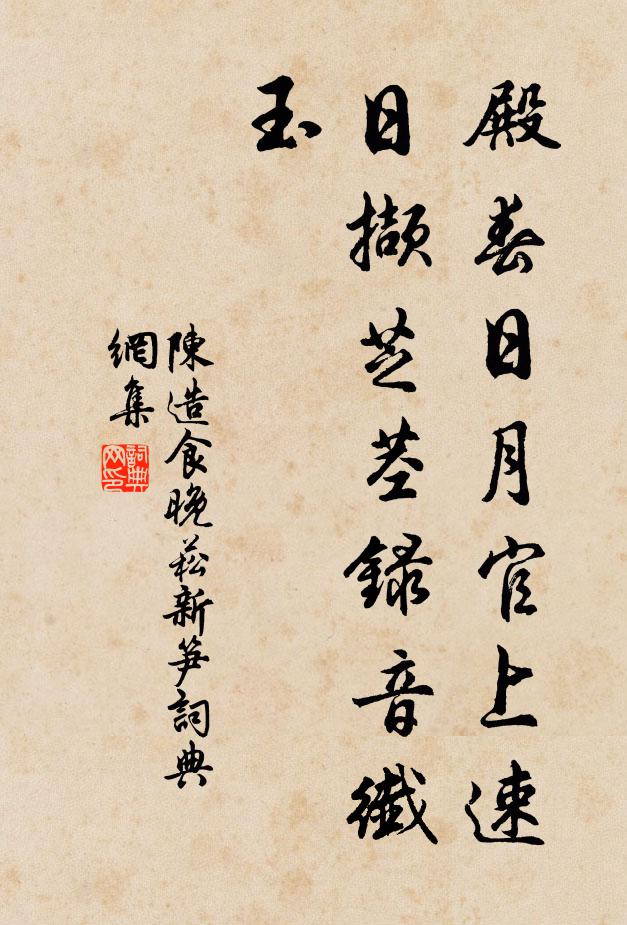 殿春日月官上速
日擷芝茎録音纖
玉
陳造食晚菘新笋詞典
網集
詞典网印